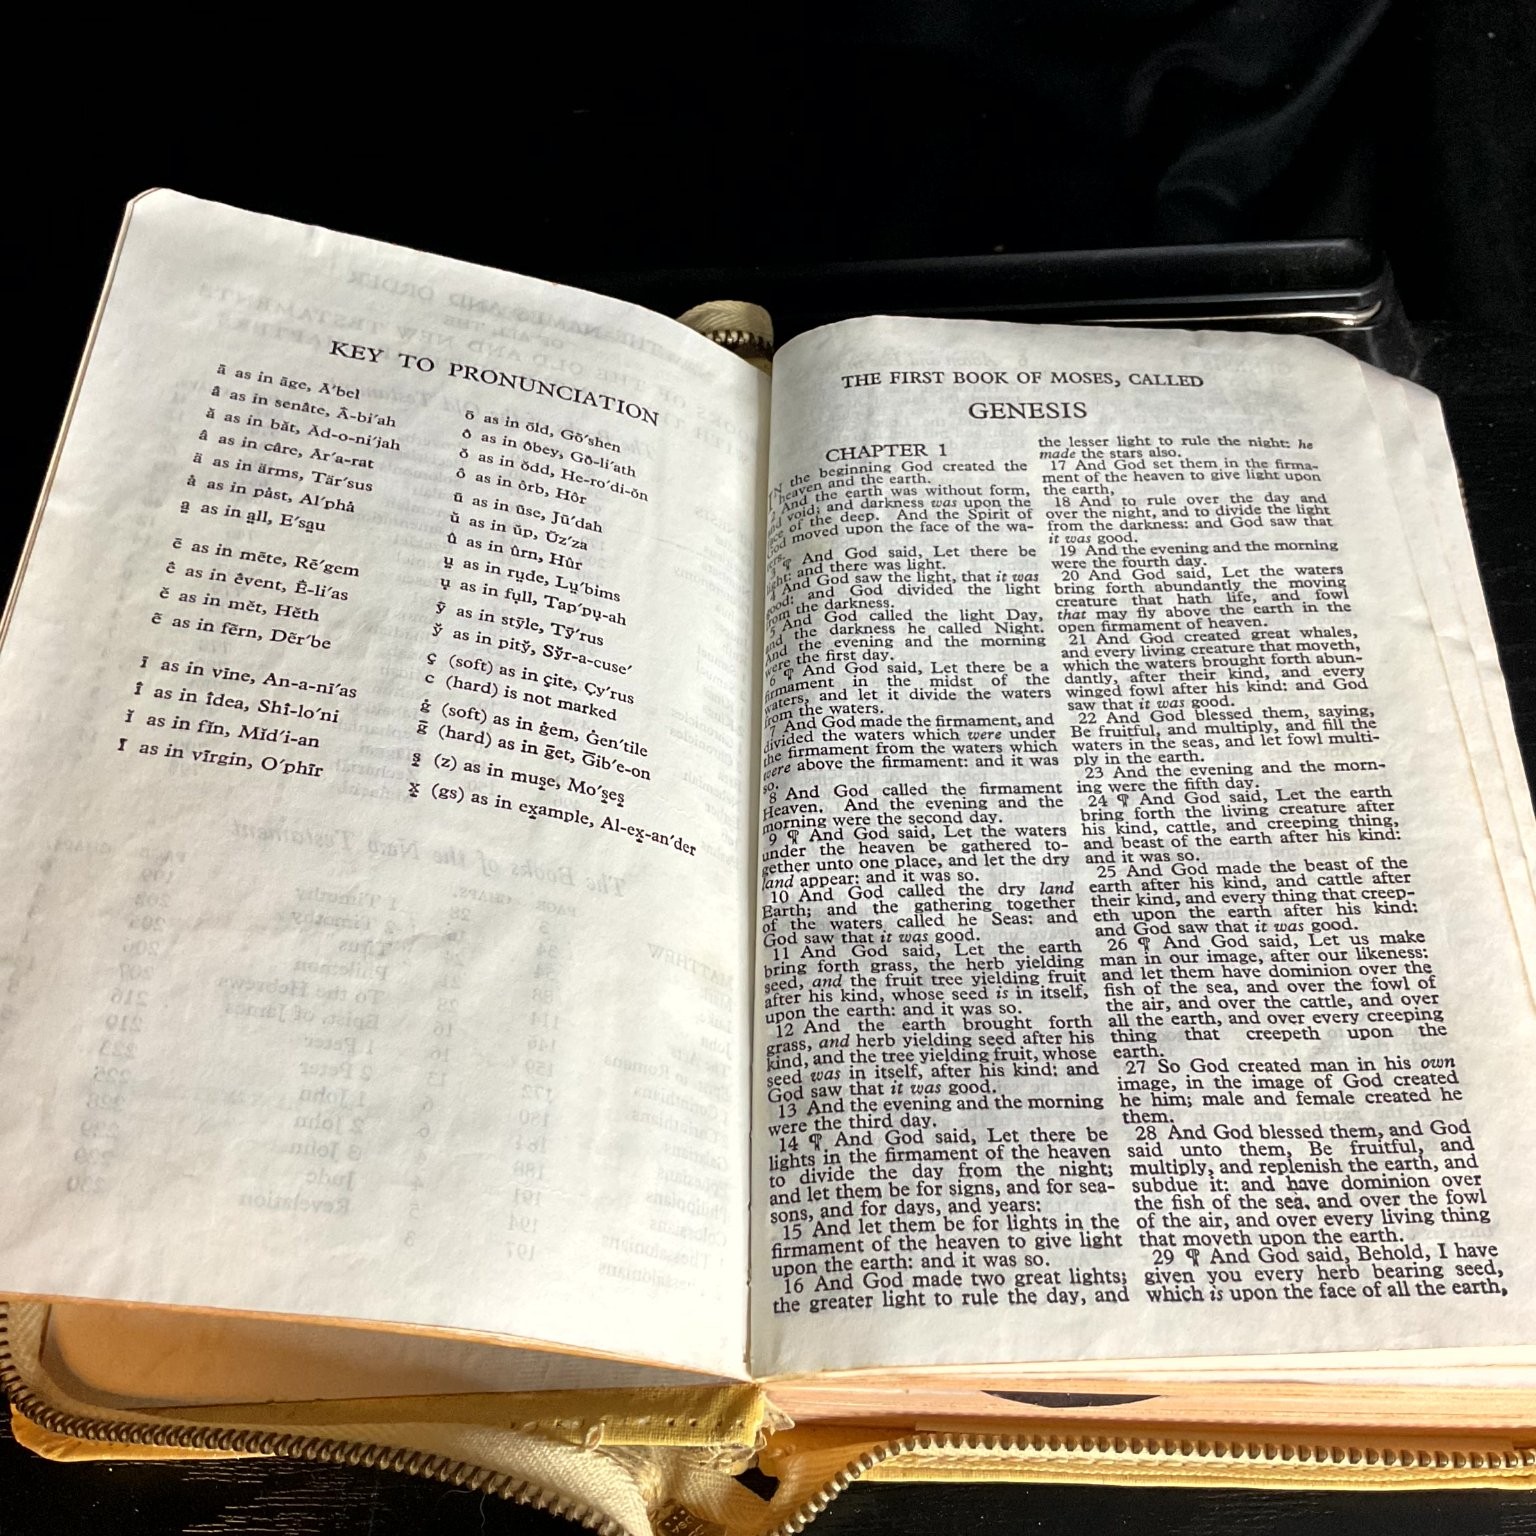 KEY TO PRONUNCIATION
ā as in āge, Ā′bel
â as in senâte, Â-bi′ah
ă as in băt, Ăd-o-ni′jah
â as in câre, Ar′a-rat
ä as in ärms, Tär′sus
ȧ as in pȧst, Al′phȧ
a̤ as in a̤ll, E′sa̤u
ē as in mēte, Rē′gem
ê as in êvent, Ê-li′as
ĕ as in mĕt, Hĕth
ẽ as in fẽrn, Dẽr′be
ī as in vīne, An-a-nī′as
î as in îdea, Shî-lo′ni
ĭ as in fĭn, Mĭd′i-an
ĩ as in vĩrgin, O′phĩr
ō as in ōld, Gō′shen
ô as in ôbey, Gô-li′ath
ŏ as in ŏdd, He-ro′di-ŏn
ô as in ôrb, Hôr
ū as in ūse, Jū′dah
ŭ as in ŭp, Ŭz′za
û as in ûrn, Hûr
ṳ as in rṳde, Lṳ′bims
ụ as in fụll, Tap′pụ-ah
ȳ as in stȳle, Tȳ′rus
y̆ as in pity̆, Sy̆r-a-cuse′
ç (soft) as in çite, Çy′rus
c (hard) is not marked
ġ (soft) as in ġem, Ġen′tile
ḡ (hard) as in ḡet, Ḡib′e-on
s̱ (z) as in mus̱e, Mo′s̱es̱
x̱ (gs) as in ex̱ample, Al-ex̱-an′der
THE FIRST BOOK OF MOSES, CALLED
GENESIS
CHAPTER 1
IN the beginning God created the
heaven and the earth.
2 And the earth was without form,
and void; and darkness was upon the
face of the deep. And the Spirit of
God moved upon the face of the wa-
ters.
3 ¶ And God said, Let there be
light: and there was light.
4 And God saw the light, that it was
good: and God divided the light
from the darkness.
5 And God called the light Day,
and the darkness he called Night.
And the evening and the morning
were the first day.
6 ¶ And God said, Let there be a
firmament in the midst of the
waters, and let it divide the waters
from the waters.
7 And God made the firmament, and
divided the waters which were under
the firmament from the waters which
were above the firmament: and it was
so.
8 And God called the firmament
Heaven. And the evening and the
morning were the second day.
9 ¶ And God said, Let the waters
under the heaven be gathered to-
gether unto one place, and let the dry
land appear: and it was so.
10 And God called the dry land
Earth; and the gathering together
of the waters called he Seas: and
God saw that it was good.
11 And God said, Let the earth
bring forth grass, the herb yielding
seed, and the fruit tree yielding fruit
after his kind, whose seed is in itself,
upon the earth: and it was so.
12 And the earth brought forth
grass, and herb yielding seed after his
kind, and the tree yielding fruit, whose
seed was in itself, after his kind: and
God saw that it was good.
13 And the evening and the morning
were the third day.
14 ¶ And God said, Let there be
lights in the firmament of the heaven
to divide the day from the night;
and let them be for signs, and for sea-
sons, and for days, and years:
15 And let them be for lights in the
firmament of the heaven to give light
upon the earth: and it was so.
16 And God made two great lights;
the greater light to rule the day, and
the lesser light to rule the night: he
made the stars also.
17 And God set them in the firma-
ment of the heaven to give light upon
the earth,
18 And to rule over the day and
over the night, and to divide the light
from the darkness: and God saw that
it was good.
19 And the evening and the morning
were the fourth day.
20 And God said, Let the waters
bring forth abundantly the moving
creature that hath life, and fowl
that may fly above the earth in the
open firmament of heaven.
21 And God created great whales,
and every living creature that moveth,
which the waters brought forth abun-
dantly, after their kind, and every
winged fowl after his kind: and God
saw that it was good.
22 And God blessed them, saying,
Be fruitful, and multiply, and fill the
waters in the seas, and let fowl multi-
ply in the earth.
23 And the evening and the morn-
ing were the fifth day.
24 ¶ And God said, Let the earth
bring forth the living creature after
his kind, cattle, and creeping thing,
and beast of the earth after his kind:
and it was so.
25 And God made the beast of the
earth after his kind, and cattle after
their kind, and every thing that creep-
eth upon the earth after his kind:
and God saw that it was good.
26 ¶ And God said, Let us make
man in our image, after our likeness:
and let them have dominion over the
fish of the sea, and over the fowl of
the air, and over the cattle, and over
all the earth, and over every creeping
thing that creepeth upon the
earth.
27 So God created man in his own
image, in the image of God created
he him; male and female created he
them.
28 And God blessed them, and God
said unto them, Be fruitful, and
multiply, and replenish the earth, and
subdue it: and have dominion over
the fish of the sea, and over the fowl
of the air, and over every living thing
that moveth upon the earth.
29 ¶ And God said, Behold, I have
given you every herb bearing seed,
which is upon the face of all the earth,